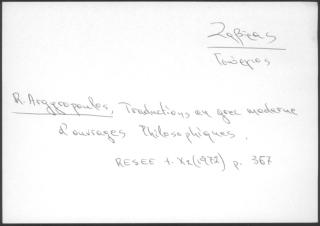 Ζαβίρας
Γεώργιος
R. Argyropoulos, Traductions en grec moderne
d'ouvrages Philosophiques.
RESEE t. X2 (1972) p. 367